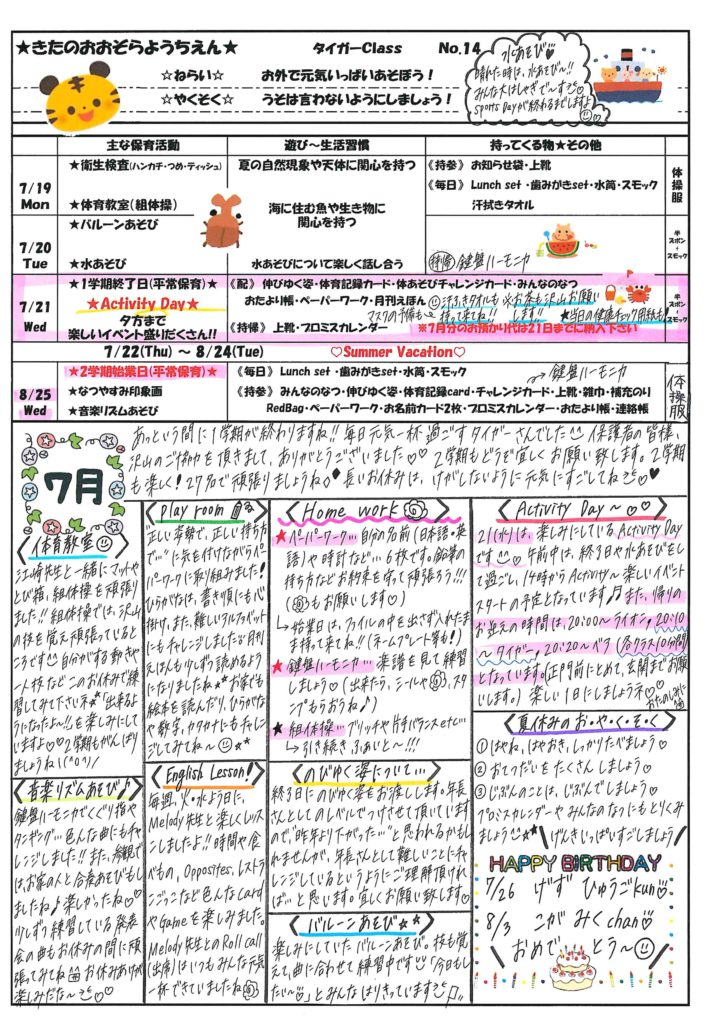 ★きたのおおぞらようちえん★ タイガーClass No.14
☆ねらい☆ お外で元気いっぱいあそぼう！
☆やくそく☆ うそは言わないようにしましょう！
水あそび♡
晴れた時は、水あそび〜!!
みんな大はしゃぎで〜す
Sports Dayが終わるまでしますよ
主な保育活動 遊び〜生活習慣 持ってくる物★その他
7/19
Mon
★衛生検査(ハンカチ・つめ・ティッシュ)
★体育教室(組体操)
夏の自然現象や天体に関心を持つ
海に住む魚や生き物に
関心を持つ
《持参》 お知らせ袋・上靴
《毎日》 Lunch set ・歯みがきset・水筒・スモック
汗拭きタオル
体操服
7/20
Tue
★バルーンあそび
★水あそび
水あそびについて楽しく話し合う
持帰 鍵盤ハーモニカ
半スボン・スモック
7/21
Wed
★1学期終了日(平常保育)★
★Activity Day★
夕方まで
楽しいイベント盛りだくさん!!
《配》 伸びゆく姿・体育記録カード・体あそびチャレンジカード・みんなのなつ
おたより帳・ペーパーワーク・月刊えほん
汗ふきタオルも
持って来てね!!
お茶も沢山お願い
します!!
マスクの予備も
★当日の健康チェック用紙も!
《持帰》 上靴・プロミスカレンダー ※7月分のお預かり代は21日までに納入下さい
半スボン・スモック
7/22(Thu) 〜 8/24(Tue) ♡Summer Vacation♡
8/25
Wed
★2学期始業日(平常保育)★
★なつやすみ印象画
★音楽リズムあそび
《毎日》 Lunch set ・歯みがきset ・水筒・スモック
→鍵盤ハーモニカ
《持参》 みんなのなつ・伸びゆく姿・体育記録card・チャレンジカード・上靴・雑巾・補充のり
RedBag・ペーパーワーク・お名前カード2枚・プロミスカレンダー・おたより帳・連絡帳
体操服
7月
あっという間に1学期が終わりますね!! 毎日元気一杯過ごすタイガーさんでした 保護者の皆様、
沢山のご協力を頂きまして、ありがとうございました♡♡ 2学期もどうぞ宜しくお願い致します。2学期
も楽しく！27名で頑張りましょうね◇♦長いお休みは、けがしないように元気にすごしてね♡♥
体育教室
江崎先生と一緒にマットや
とび箱、組体操を頑張り
ました!! 組体操では、沢山
の技を覚え頑張っていると
ころです 自分がする動きや
ート技など このお休みで練
習してみて下さいネ★「出来るよ
うになったよ〜!!」を楽しみにして
いますよ♡♡2学期もがんばり
ましょうね！(^o^)/
Play room
"正しい姿勢で、正しい持ち方
で…"に気を付けながらペーパー
パワークに取り組みました！
ひらがなは、書き順にも心
掛け、また、難しいアルファベット
にもチャレンジしました♡月刊
えほんも少しずつ読めるよう
になりましたね★お家でも
絵本を読んだり、ひらがな
や数字、カタカナにもチャレン
ジしてみてね〜★★
Home work
★ペーパーワーク…自分の名前(日本語・英
語)や時計など…6枚です。鉛筆の
持ち方などお約束を守って頑張ろう!!!
(も お願いします♡)
→始業日は、ファイルの中を出さず入れたま
ま持って来てね!!(ネームプレート等も!)
★鍵盤ハーモニカ…楽譜を見て練習
しましょう♡(出来たら、シールや、スタ
ンプもらおうね♪)
★組体操…ブリッヂや片手バランスetc…
→引き続きふぁいと〜!!!
Activity Day〜♡♡
21(水)は、楽しみにしているActivity Day
です 午前中は、終了日や水あそびをし
て過ごし、14時からActivity〜楽しいイベント
スタートの予定となっています♫また、帰りの
お迎えの時間は、20:00〜ライオン、20:10
〜タイガー、20:20〜ベア(各クラス10分間)
となっています。(正門前にとめて、玄関までお願
いします。) 楽しい1日にしましょうネ♡
おたのしみに♡
音楽リズムあそび♪
鍵盤ハーモニカでくぐり指や
タンギング…色んな曲にもチャ
レンジしました!! また、参観で
は、お家の人と合奏あそびもし
ましたね♪楽しかったね♡♡
少しずつ練習している発表
会の曲もお休みの間に頑
張ってみてね お休みあけが
楽しみだな〜♡♡
English Lesson!
毎週、火・水よう日に、
Melody先生と楽しくレッス
ンしましたよ!! 時間や食
べもの、Opposites、レストラン
ごっこなど色んなcard
やGameを楽しみました。
Melody先生とのRoll call
(出席)はいつもみんな元気
一杯できていましたね
のびゆく姿について…
終了日にのびゆく姿をお渡しします。年長
さんとしてのレベルでつけさせて頂いています
ので、"昨年より下がった…"と思われるかもし
れませんが、年長さんとして難しいことにチャ
レンジしているというようにご理解頂けれ
ば…と思います。宜しくお願い致します♡
バルーンあそび★★
楽しみにしていたバルーンあそび。技も覚
えて、曲に合わせて練習中です「今日もし
たい〜」とみんなはりきっています♫
夏休みのお・や・く・そ・く
① はやね、はやおき、しっかりたべましょう♡
② おてつだいをたくさんしましょう♡
③ じぶんのことは、じぶんでしましょう♡
プロミスカレンダーやみんなのなつにもとりくみ
ましょう★★
げんきいっぱいすごしましょう
HAPPY BIRTHDAY
7/26 げずひゅうごkun
8/3 こがみくchan
おめでとう〜